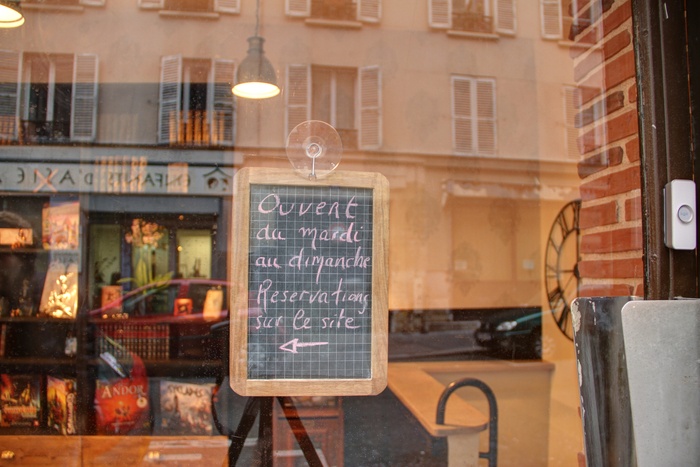 ENFANTS D'ASIE
Ouvert
du mardi
au dimanche
Reservations
sur le site
ANDOR